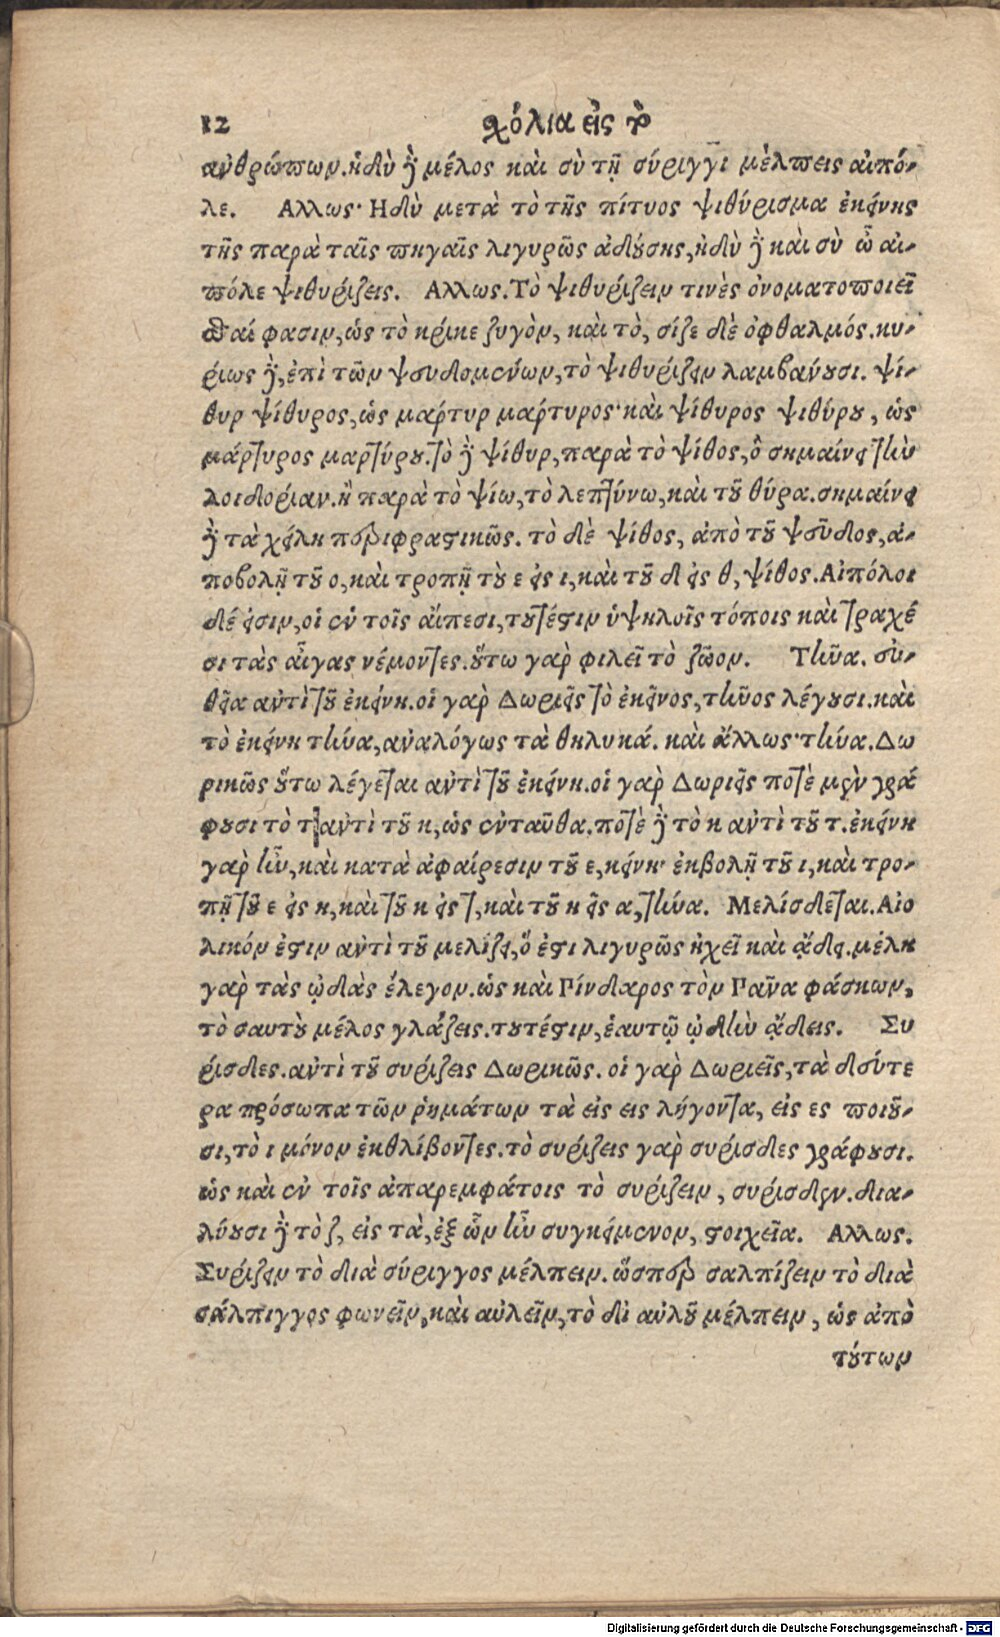 12 σχόλια εἰς τὸ
ἀνθρώπων. ἡδὺ δὲ μέλος καὶ σὺ τῇ σύριγγι μέλπεις αἰπό-
λε. Ἄλλως· Ἡδὺ μετὰ τὸ τῆς πίτυος ψιθύρισμα ἐκείνης
τῆς παρὰ ταῖς πηγαῖς λιγυρῶς ᾀδούσης, ἡδὺ δὲ καὶ σὺ ὦ αἰ-
πόλε ψιθυρίζεις. Ἄλλως. Τὸ ψιθυρίζειν τινὲς ὀνοματοποιεῖ
σθαί φασιν, ὡς τὸ κρίκε ζυγὸν, καὶ τὸ, σίζε δὲ ὀφθαλμός. κυ-
ρίως δὲ, ἐπὶ τῶν ψευδομένων, τὸ ψιθυρίζειν λαμβάνουσι. ψί-
θυρ ψίθυρος, ὡς μάρτυρ μάρτυρος· καὶ ψίθυρος ψιθύρου, ὡς
μάρτυρος μαρτύρου. τὸ δὲ ψίθυρ, παρὰ τὸ ψίθος, ὃ σημαίνει τὴν
λοιδορίαν. ἢ παρὰ τὸ ψίω, τὸ λεπτύνω, καὶ τοῦ θύρα. σημαίνει
δὲ τὰ χείλη περιφραστικῶς. τὸ δὲ ψίθος, ἀπὸ τοῦ ψεῦδος, ἀ-
ποβολῇ τοῦ ο, καὶ τροπῇ τοῦ ε εἰς ι, καὶ τοῦ δ εἰς θ, ψίθος. Αἰπόλοι
δέ εἰσιν, οἱ ἐν τοῖς αἴπεσι, τουτέστιν ὑψηλοῖς τόποις καὶ τραχέ
σι τὰς αἶγας νέμοντες. οὕτω γὰρ φιλεῖ τὸ ζῶον. Τῆνα. σύ-
θεια αὐτὶ τοῦ ἐκείνη. οἱ γὰρ Δωριεῖς τὸ ἐκεῖνος, τῆνος λέγουσι. καὶ
τὸ ἐκείνη τήνα, ἀναλόγως τὰ θηλυκά. καὶ ἄλλως· τήνα. Δω
ρικῶς οὕτω λέγεται αὐτὶ τοῦ ἐκείνη. οἱ γὰρ Δωριεῖς ποτὲ μὲν γρά
φουσι τὸ τ αὐτὶ τοῦ κ, ὡς ἐνταῦθα. ποτὲ δὲ τὸ κ αὐτὶ τοῦ τ. ἐκείνη
γὰρ ἦν, καὶ κατὰ ἀφαίρεσιν τοῦ ε, κείνη· ἐκβολῇ τοῦ ι, καὶ τρο-
πῇ τοῦ ε εἰς η, καὶ τοῦ κ εἰς τ, καὶ τοῦ η εἰς α, τήνα. Μελίσδεται. Αἰο
λικόν ἐστιν αὐτὶ τοῦ μελίζει, ὅ ἐστι λιγυρῶς ἠχεῖ καὶ ᾄδει. μέλη
γὰρ τὰς ᾠδὰς ἔλεγον. ὡς καὶ Πίνδαρος τὸν Πᾶνα φάσκων,
τὸ σαυτοῦ μέλος γλάζεις. τουτέστιν, ἑαυτῷ ᾠδὴν ᾄδεις. Συ
ρίσδες. αὐτὶ τοῦ συρίζεις Δωρικῶς. οἱ γὰρ Δωριεῖς, τὰ δεύτε
ρα πρόσωπα τῶν ῥημάτων τὰ εἰς εις λήγοντα, εἰς ες ποιοῦ-
σι, τὸ ι μόνον ἐκθλίβοντες. τὸ συρίζεις γὰρ συρίσδες γράφουσι.
ὡς καὶ ἐν τοῖς ἀπαρεμφάτοις τὸ συρίζειν, συρίσδεν. δια-
λύουσι δὲ τὸ ζ, εἰς τὰ, ἐξ ὧν ἦν συγκείμενον, στοιχεῖα. Ἄλλως.
Συρίζειν τὸ διὰ σύριγγος μέλπειν. ὥσπερ σαλπίζειν τὸ διὰ
σάλπιγγος φωνεῖν, καὶ αὐλεῖν, τὸ δι αὐλοῦ μέλπειν, ὡς ἀπὸ
τούτων
Digitalisierung gefördert durch die Deutsche Forschungsgemeinschaft - DFG